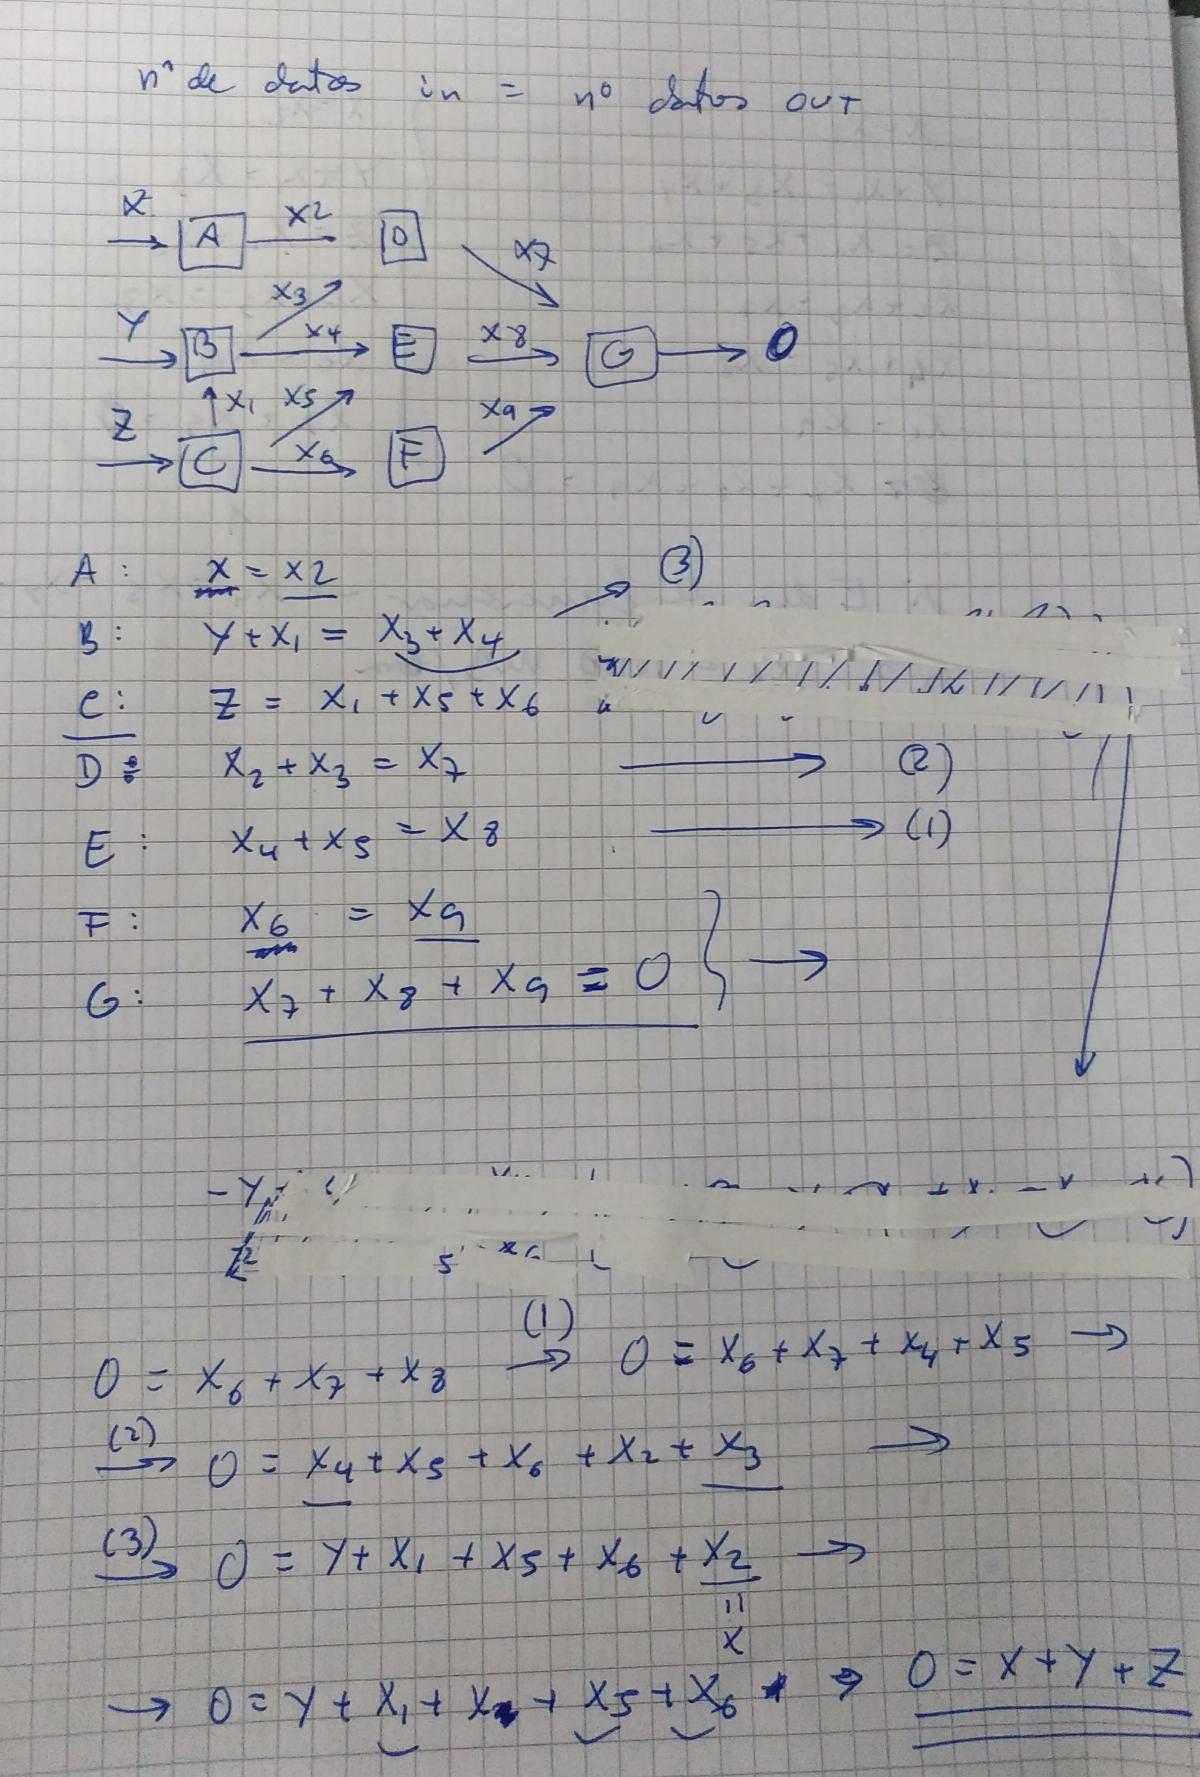 nº de datos in = nº datos OUT
X A X2 D X7
X3
Y B X4 E X8 G O
X1 X5 X9
Z C X6 F
A: X = X2 (3)
B: Y + X1 = X3 + X4
C: Z = X1 + X5 + X6
D: X2 + X3 = X7 → (2)
E: X4 + X5 = X8 → (1)
F: X6 = X9
G: X7 + X8 + X9 = O →
O = X6 + X7 + X8 (1) → O = X6 + X7 + X4 + X5 →
(2) → O = X4 + X5 + X6 + X2 + X3 →
(3) → O = Y + X1 + X5 + X6 + X2 →
=
X
→ O = Y + X1 + X + X5 + X6 → O = X + Y + Z